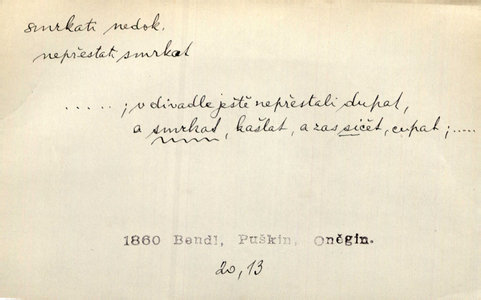 smrkati nedok.
nepřestati smrkat
.....; v divadle ještě nepřestali dupat,
a smrkat, kašlat, a zas sičet, cupat; .....
1860 Bendl, Puškin, Oněgin.
20, 13